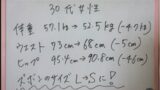 30代女性
体重 57.1kg→52.5kg (-4.7kg)
ウエスト 73cm→68cm (-5cm)
ヒップ 95.4cm→90.8cm (-4.6cm)
ズボンのサイズ L→Sに!